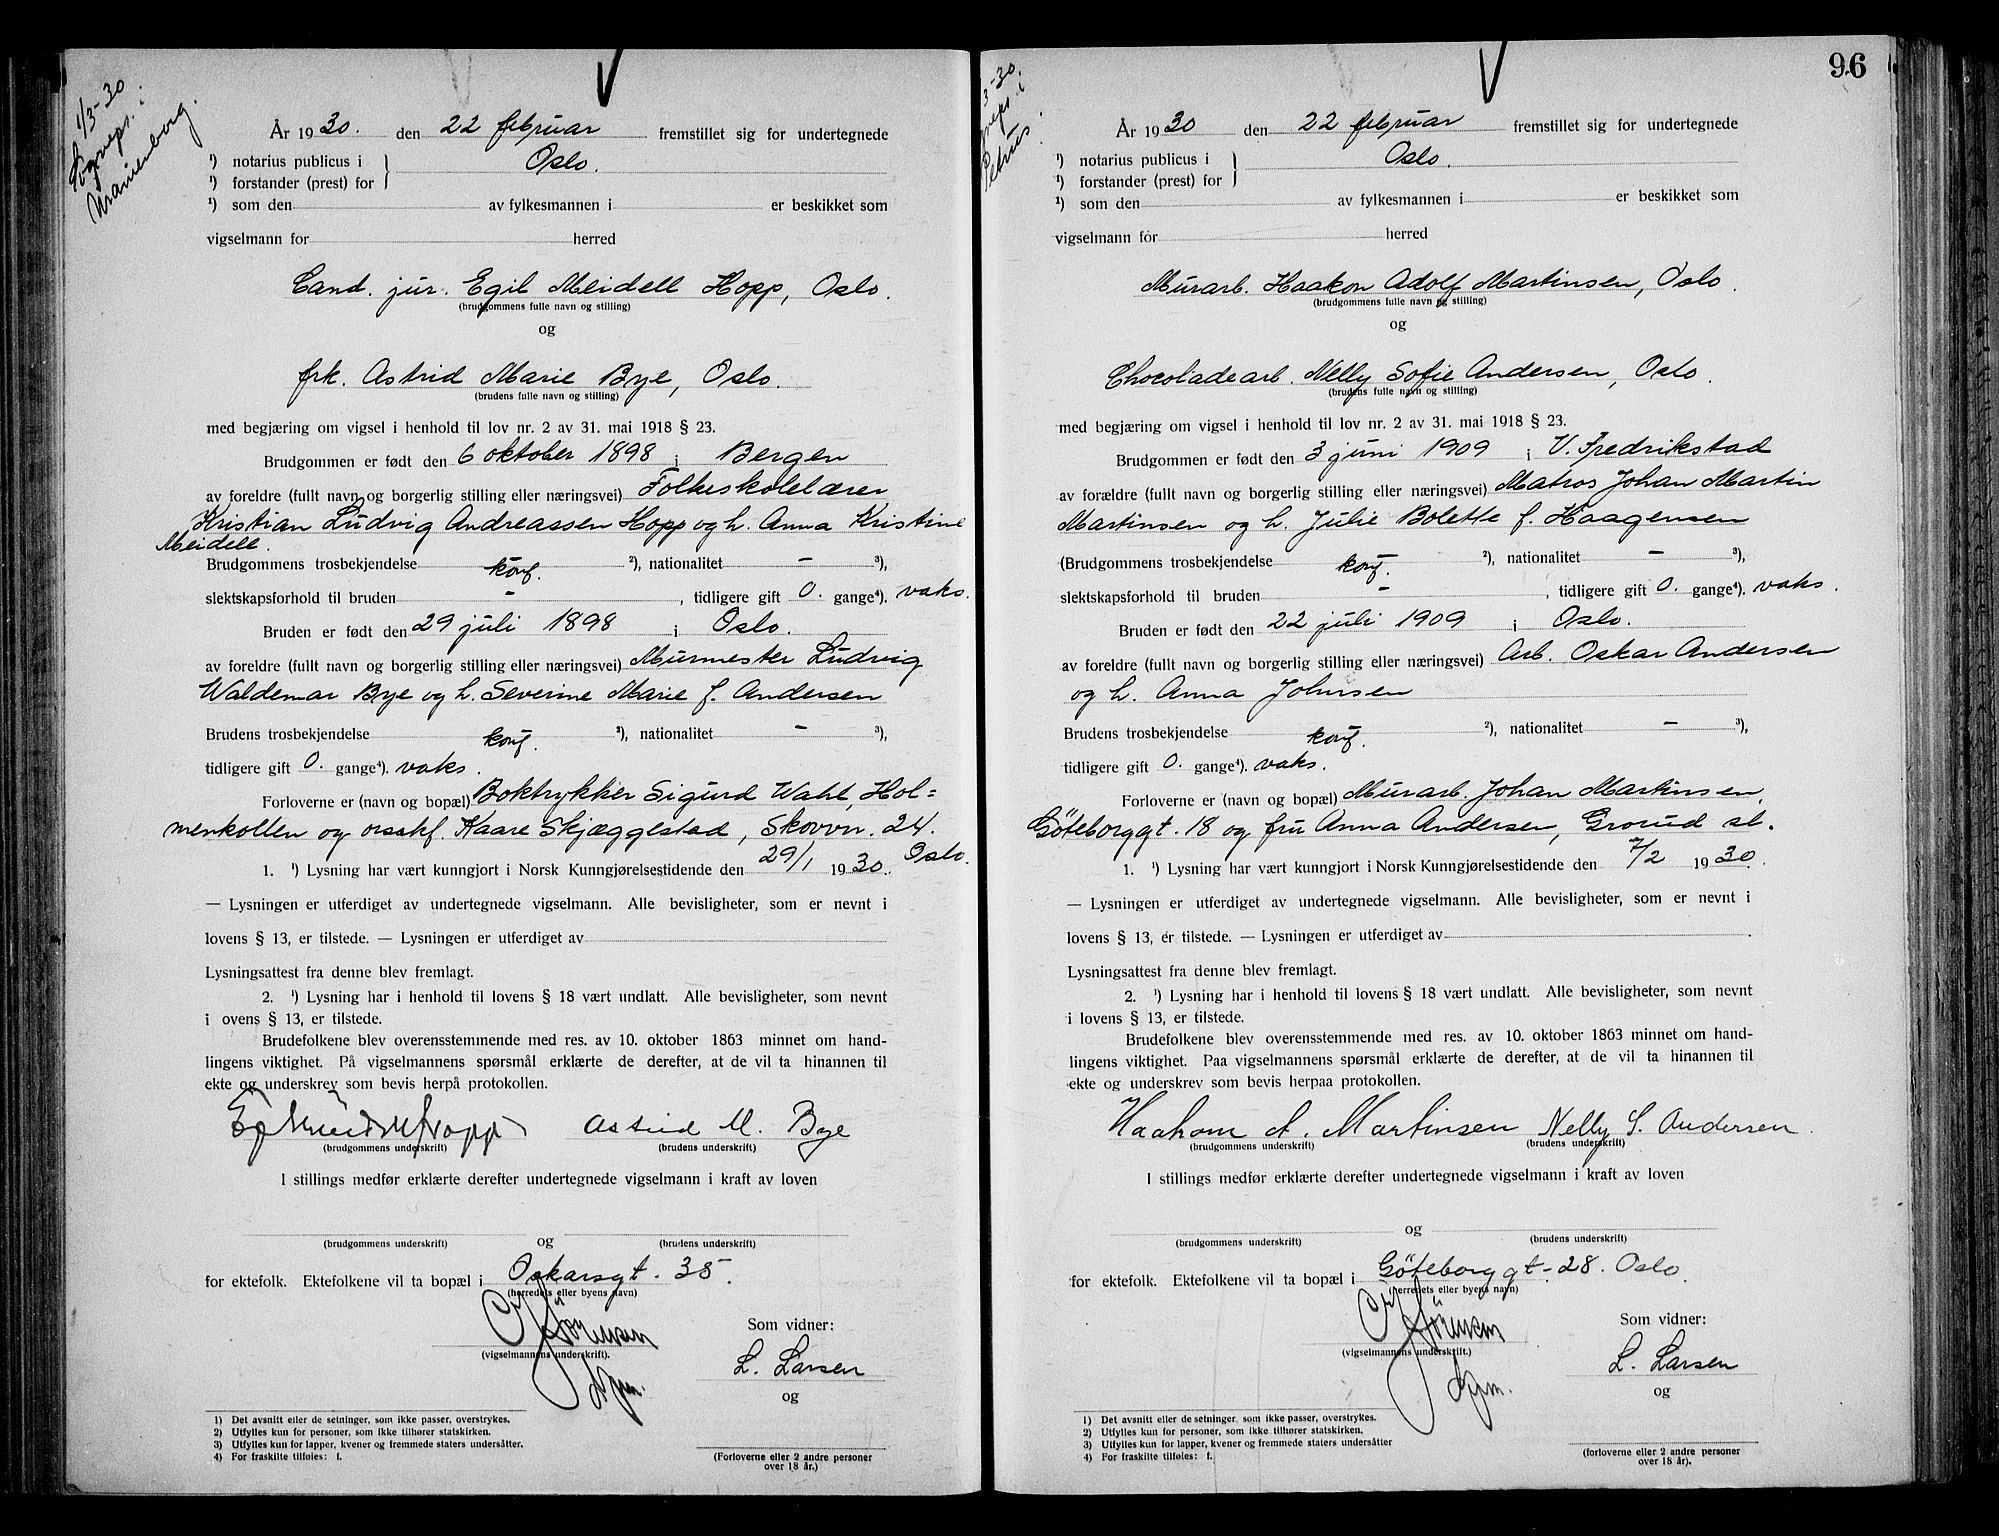 1/3-30
Sogneps. i
Uranienborg.
År 1930. den 22 februar fremstillet sig for undertegnede
¹) notarius publicus i } Oslo.
¹) forstander (prest) for
¹) som den av fylkesmannen i er beskikket som
vigselmann for herred
Cand. jur. Egil Meidell Hopp, Oslo.
(brudgommens fulle navn og stilling)
og
frk. Astrid Marie Bye, Oslo.
(brudens fulle navn og stilling)
med begjæring om vigsel i henhold til lov nr. 2 av 31. mai 1918 § 23.
Brudgommen er født den 6 oktober 1898 i Bergen
av foreldre (fullt navn og borgerlig stilling eller næringsvei) Folkeskolelærer
Kristian Ludvig Andreassen Hopp og h. Anna Kristine
Meidell.
Brudgommens trosbekjendelse konf. ²), nationalitet – ³),
slektskapsforhold til bruden – , tidligere gift 0. gange⁴). vaks.
Bruden er født den 29 juli 1898 i Oslo.
av foreldre (fullt navn og borgerlig stilling eller næringsvei) Murmester Ludvig
Waldemar Bye og h. Severine Marie f. Andersen
Brudens trosbekjendelse konf. ²), nationalitet – ³),
tidligere gift 0. gange⁴). vaks.
Forloverne er (navn og bopæl) Boktrykker Sigurd Wahl, Hol=
menkollen og orsakf. Kaare Skjæggestad, Skovvn. 24.
Oslo.
1. ¹) Lysning har vært kunngjort i Norsk Kunngjørelsestidende den 29/1 1930.
— Lysningen er utferdiget av undertegnede vigselmann. Alle bevisligheter, som er nevnt i
lovens § 13, er tilstede. — Lysningen er utferdiget av
Lysningsattest fra denne blev fremlagt.
2. ¹) Lysning har i henhold til lovens § 18 vært undlatt. Alle bevisligheter, som nevnt
i ovens § 13, er tilstede.
Brudefolkene blev overensstemmende med res. av 10. oktober 1863 minnet om hand-
lingens viktighet. På vigselmannens spørsmål erklærte de derefter, at de vil ta hinannen til
ekte og underskrev som bevis herpå protokollen.
Egil Meidell Hopp Astrid M. Bye
(brudgommens underskrift) (brudens underskrift)
I stillings medfør erklærte derefter undertegnede vigselmann i kraft av loven
og
(brudgommens underskrift) (brudens underskrift)
for ektefolk. Ektefolkene vil ta bopæl i Oskarsgt. 35.
(herredets eller byens navn)
Som vidner:
(vigselmannens underskrift).
L. Larsen
og
1) Det avsnitt eller de setninger, som ikke passer, overstrykes.
2) Utfylles kun for personer, som ikke tilhører statskirken.
3) Utfylles kun for lapper, kvener og fremmede staters undersåtter.
4) For fraskilte tilføies: f.
(Forloverne eller 2 andre personer
over 18 år.)
96
3-30.
i
Petrus
År 1930 den 22 februar fremstillet sig for undertegnede
¹) notarius publicus i } Oslo.
¹) forstander (prest) for
¹) som den av fylkesmannen i er beskikket som
vigselmann for herred
Murarb. Haakon Adolf Martinsen, Oslo.
(brudgommens fulle navn og stilling)
og
Chocoladearb. Nelly Sofie Andersen, Oslo.
(brudens fulle navn og stilling)
med begjæring om vigsel i henhold til lov nr. 2 av 31. mai 1918 § 23.
Brudgommen er født den 3 juni 1909 i V. Fredrikstad
av forældre (fullt navn og borgerlig stilling eller næringsvei) Matros Johan Martin
Martinsen og h. Julie Bolette f. Haagensen
(Brudgommens trosbekjendelse konf. ²), nationalitet – ³),
slektskapsforhold til bruden – , tidligere gift 0. gange⁴). vaks.
Bruden er født den 22 juli 1909 i Oslo.
av foreldre (fullt navn og borgerlig stilling eller næringsvei) Arb. Oskar Andersen
og h. Anna Johnsen
Brudens trosbekjendelse konf. ²), nationalitet – ³),
tidligere gift 0. gange⁴). vaks.
Forloverne er (navn og bopæl) Murarb. Johan Martinsen,
Göteborggt. 18 og fru Anna Andersen, Grorud st.
1. ¹) Lysning har vært kunngjort i Norsk Kunngjørelsestidende den 7/2 1930.
— Lysningen er utferdiget av undertegnede vigselmann. Alle bevisligheter, som er nevnt i
lovens § 13, er tilstede. — Lysningen er utferdiget av
Lysningsattest fra denne blev fremlagt.
2. ¹) Lysning har i henhold til lovens § 18 vært undlatt. Alle bevisligheter, som nevnt
i lovens § 13, er tilstede.
Brudefolkene blev overensstemmende med res. av 10. oktober 1863 minnet om hand-
lingens viktighet. Paa vigselmannens spørsmål erklærte de derefter, at de vil ta hinannen til
ekte og underskrev som bevis herpaa protokollen.
Haakon A. Martinsen Nelly S. Andersen.
(brudgommens underskrift) (brudens underskrift)
I stillings medfør erklærte derefter undertegnede vigselmann i kraft av loven
og
(brudgommens underskrift) (brudens underskrift)
for ektefolk. Ektefolkene vil ta bopæl i Göteborggt. 28. Oslo.
(herredets eller byens navn)
Som vidner:
(vigselmannens underskrift.)
L. Larsen
og
1) Det avsnitt eller de setninger, som ikke passer, overstrykes.
2) Utfylles kun for personer, som ikke tilhører statskirken.
3) Utfylles kun for lapper, kvener og fremmede staters undersåtter
4) For fraskilte tilføies: f.
(forloverne eller 2 andre personer
over 18 år).